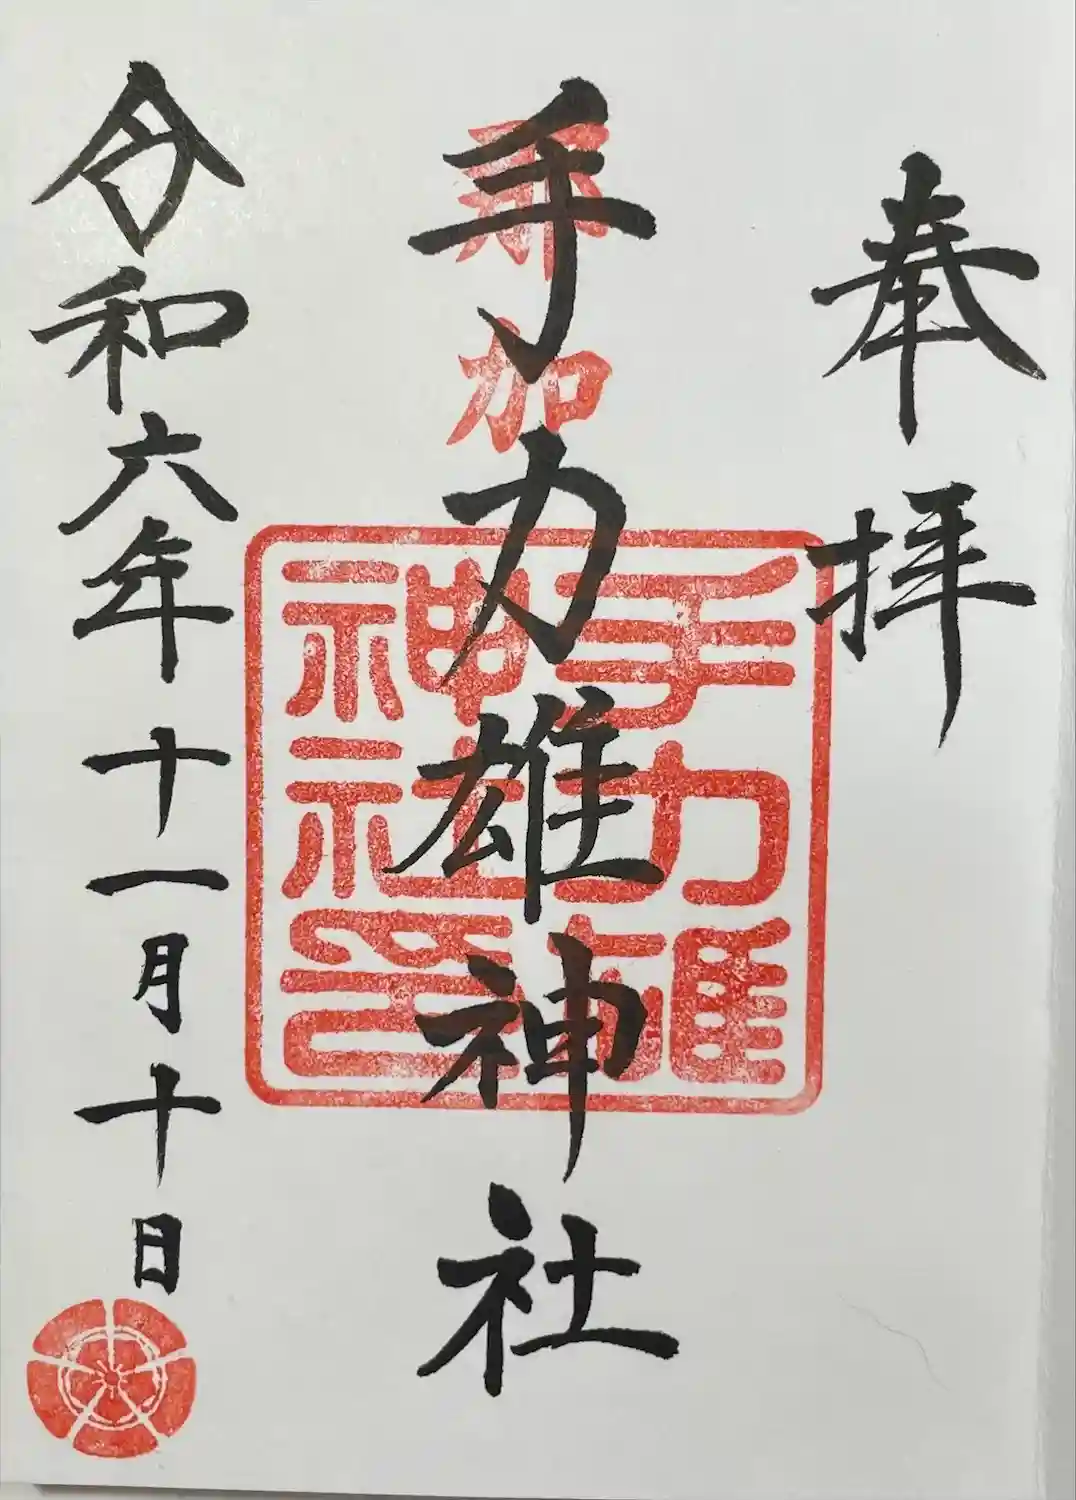 奉拝
那加
手力雄神社
手力雄
神社印
令和六年十一月十日